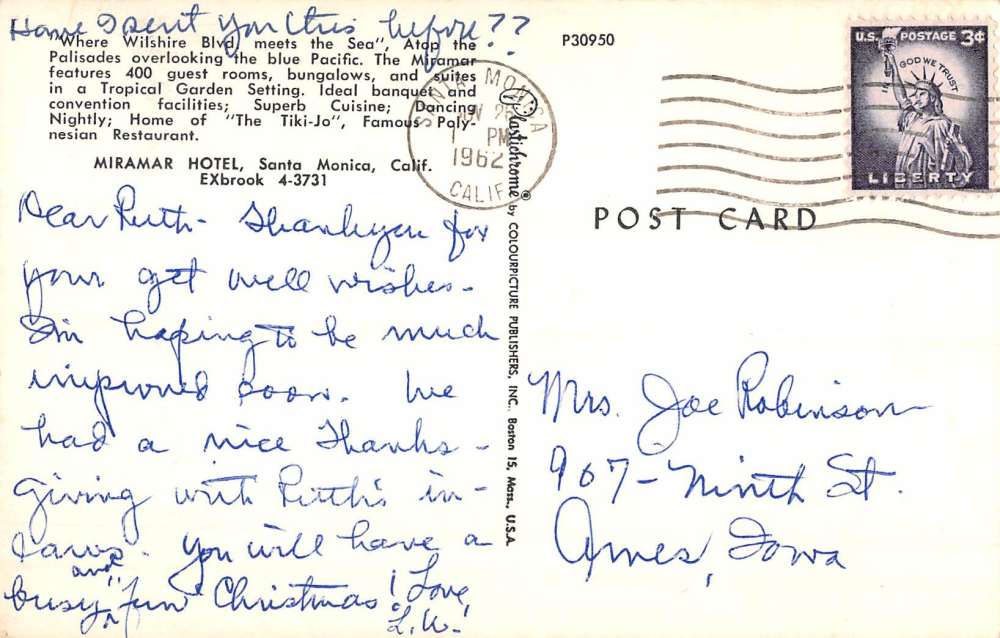 Have I sent you this before??
"Where Wilshire Blvd, meets the Sea", Atop the
Palisades overlooking the blue Pacific. The Miramar
features 400 guest rooms, bungalows, and suites
in a Tropical Garden Setting. Ideal banquet and
convention facilities; Superb Cuisine; Dancing
Nightly; Home of "The Tiki-Jo", Famous Poly-
nesian Restaurant.
MIRAMAR HOTEL, Santa Monica, Calif.
EXbrook 4-3731
Dear Ruth- Thankyou for
your get well wishes-
I'm hoping to be much
improved soon. We
had a nice Thanks-
giving with Ruth's in-
laws. You will have a
busy and fun Christmas!
Love,
L.W.
Plastichrome® by COLOURPICTURE PUBLISHERS, INC., Boston 15, Mass., U.S.A.
P30950
SANTA MONICA
NOV 26
1 PM
1962
CALIF
U.S. POSTAGE 3¢
IN GOD WE TRUST
LIBERTY
POST CARD
Mrs. Joe Robinson
967- Ninth St.
Ames, Iowa